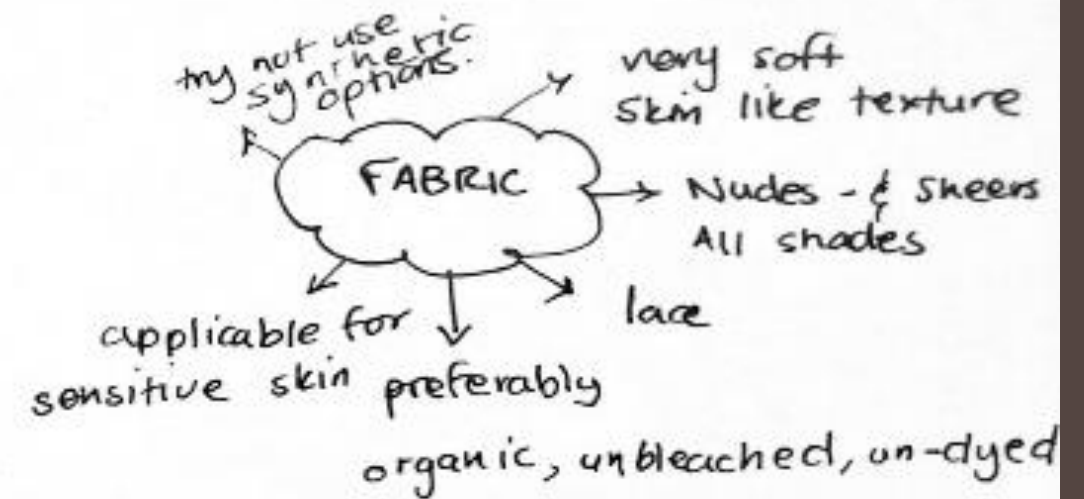 try not use
synthetic
options.
very soft
skin like texture
FABRIC
Nudes - & sheers
All shades
lace
applicable for
sensitive skin
preferably
organic, unbleached, un-dyed